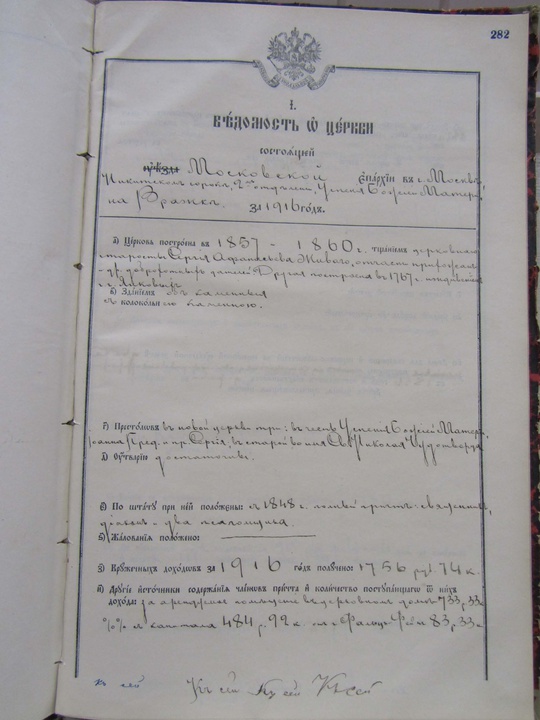 282
І.
ВѢДОМОСТЬ Ѡ ЦЕРКВИ
СОСТОЯЩЕЙ
Московской ЕПАРХІИ ВЪ г. Москвѣ,
Никитскаго сорока, 2го отдѣленія, Успенія Божіей Матери,
на Вражкѣ. ЗА 1916 ГОДЪ.
а) ЦЕРКОВЬ ПОСТРОЕНА ВЪ 1857 - 1860 г. ТЩАНІЕМЪ церковнаго
старосты Сергія Афанасьева Живаго, отчасти прихожанъ
и др. доброхотныхъ дателей. Другая построена въ 1767 г. иждивеніемъ
г. Янковыхъ
в) ЗДАНІЕМЪ обѣ каменныя
съ КОЛОКОЛЬНею каменною.
г) ПРЕСТОЛѠВЪ въ новой церкви три: въ честь Успенія Божіей Матери,
Іоанна Пред. и пр. Сергія, въ старой во имя Св. Николая Чудотворца
д) ОУТВАРІЮ достаточны.
е) ПО ШТАТУ ПРИ НЕЙ ПОЛОЖЕНЫ: съ 1848 г. причтъ: священникъ,
діаконъ и два псаломщика.
ѕ) ЖАЛОВАНІЯ ПОЛОЖЕНО:
з) КРУЖЕЧНЫХЪ ДОХОДѠВЪ ЗА 1916 ГОДЪ ПОЛУЧЕНО: 1756 руб. 74 к.
и) ДРУГІЕ ИСТОЧНИКИ СОДЕРЖАНІЯ ЧЛЕНѠВЪ ПРИЧТА И КОЛИЧЕСТВО ПОСТУПАЮЩАГѠ Ѿ НИХЪ
ДОХОДА: за арендуемое помѣщеніе въ церковномъ домѣ 733 р. 33
%% съ капитала 484 р. 92 к. 83 р. 33 к
къ сей Къ сей Къ сей Къ сей